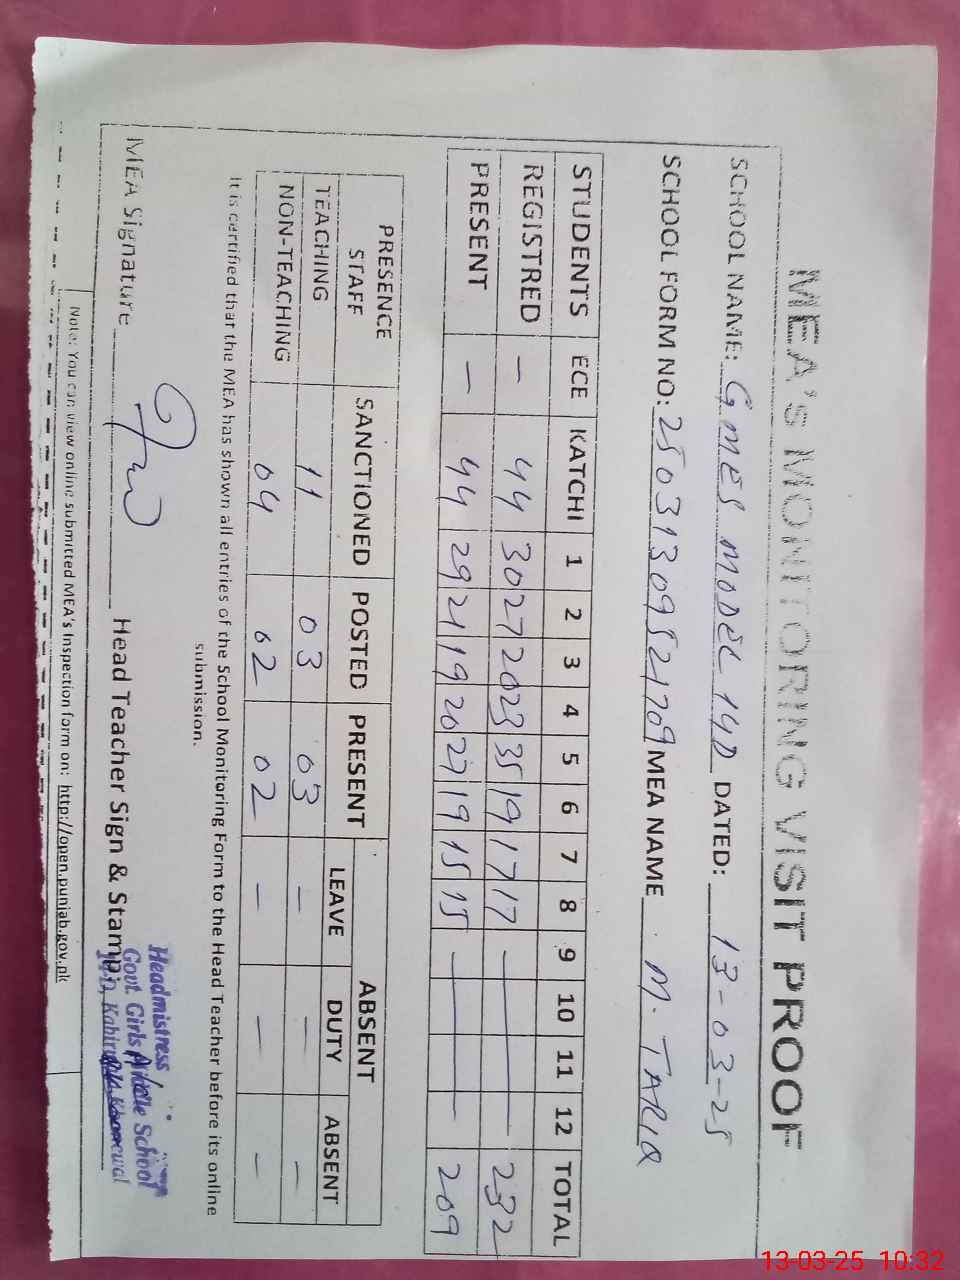 MEA'S MONITORING VISIT PROOF
SCHOOL NAME: GMES MODEL 14D DATED: 13-03-25
SCHOOL FORM NO: 25031309521709 MEA NAME M. TARIQ
STUDENTS ECE KATCHI 1 2 3 4 5 6 7 8 9 10 11 12 TOTAL
REGISTRED — 44 30 27 20 23 35 19 17 17 — 232
PRESENT — 44 29 21 19 20 27 19 15 15 — 209
PRESENCE STAFF SANCTIONED POSTED PRESENT ABSENT
LEAVE DUTY ABSENT
TEACHING 11 03 03 — — —
NON-TEACHING 04 02 02 — — —
It is certified that the MEA has shown all entries of the School Monitoring Form to the Head Teacher before its online
submission.
MEA Signature Head Teacher Sign & Stamp:
Headmistress
Govt. Girls School
Note: You can view online submitted MEA's Inspection form on: http://open.punjab.gov.pk
13-03-25 10:32